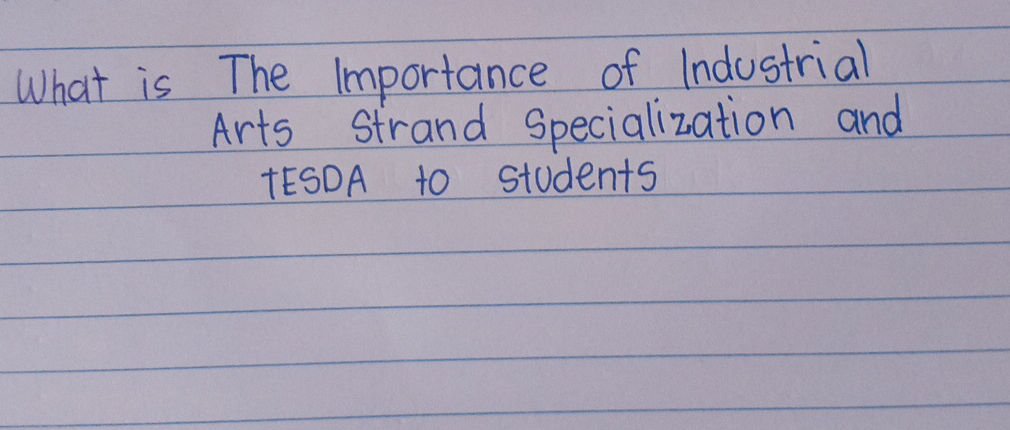 What is The Importance of Industrial
Arts Strand Specialization and
TESDA to students